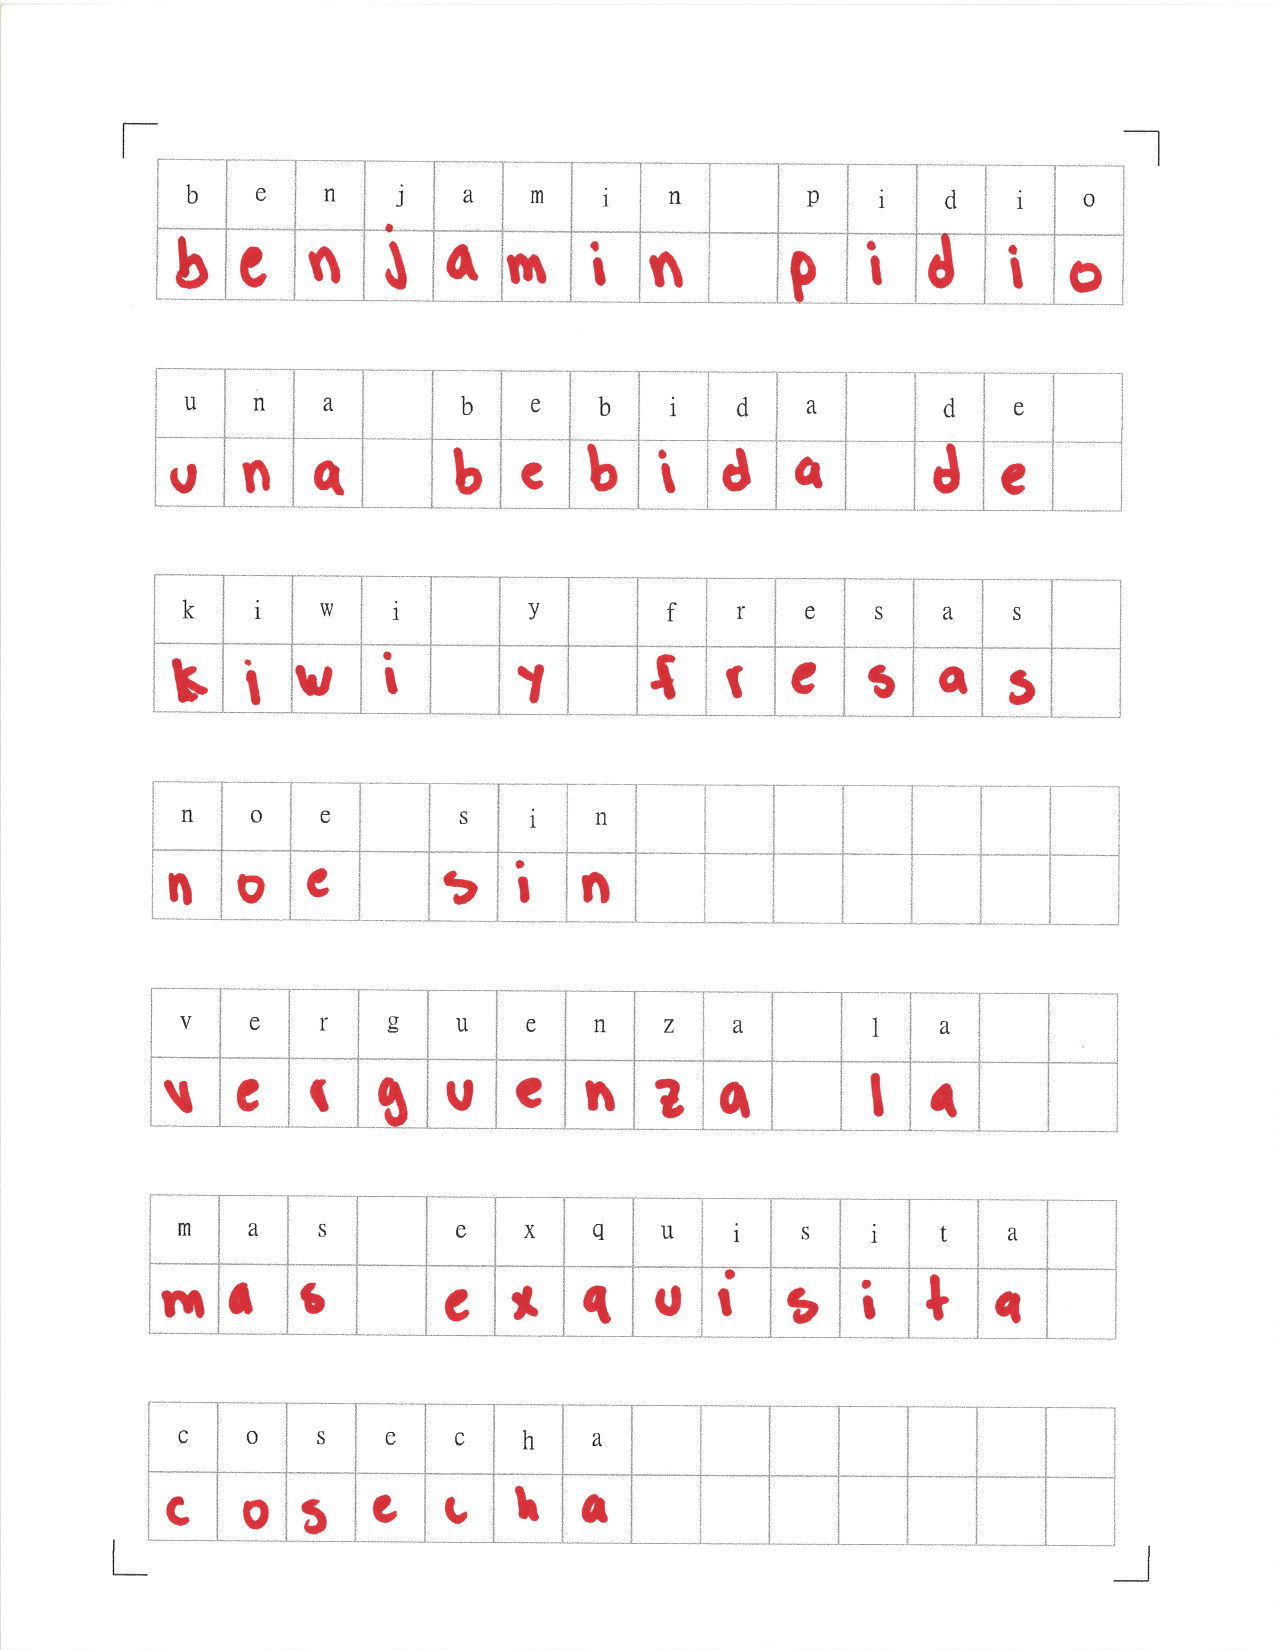 benjamin pidio
benjamin pidio
una bebida de
una bebida de
kiwi y fresas
kiwi y fresas
noe sin
noe sin
verguenza la
verguenza la
mas exquisita
mas exquisita
cosecha
cosecha